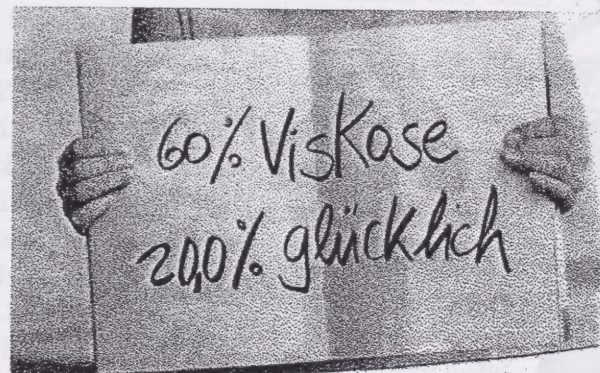 60% Viskose
20,0% glücklich